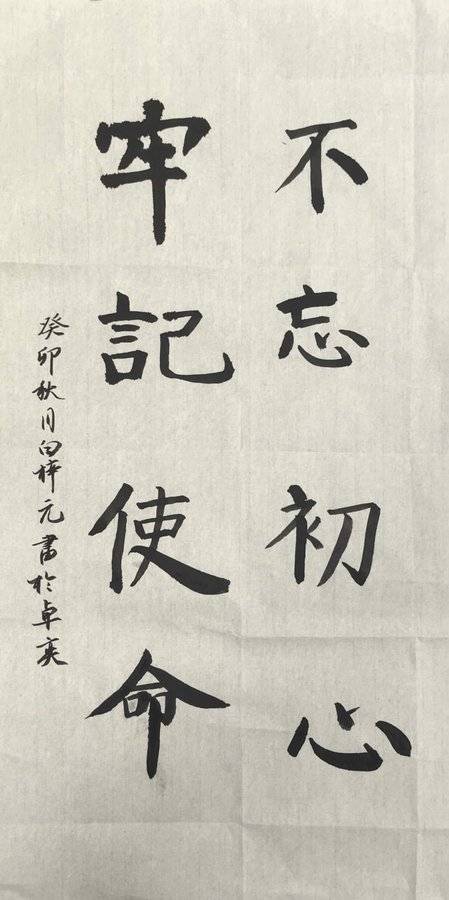 不忘初心
牢記使命
癸卯秋月白梓元書於卓奕